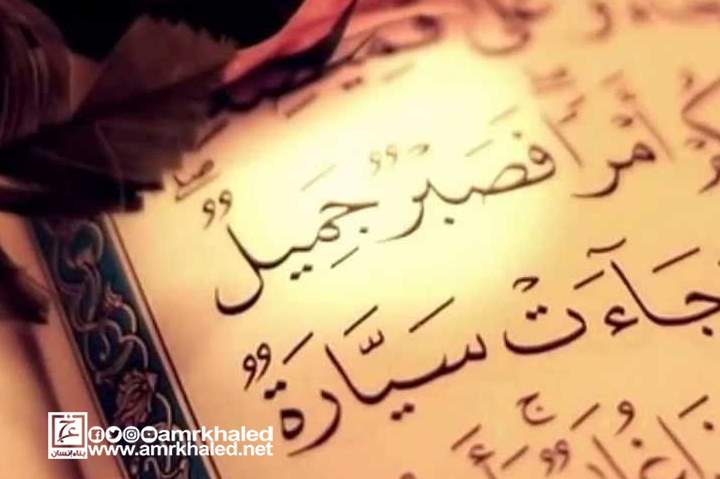 عَلَىٰ قَمِيصِهِ
أَمْرًا فَصَبْرٌ جَمِيلٌ
جَآءَتْ سَيَّارَةٌ
بناء إنسان
amrkhaled
www.amrkhaled.net